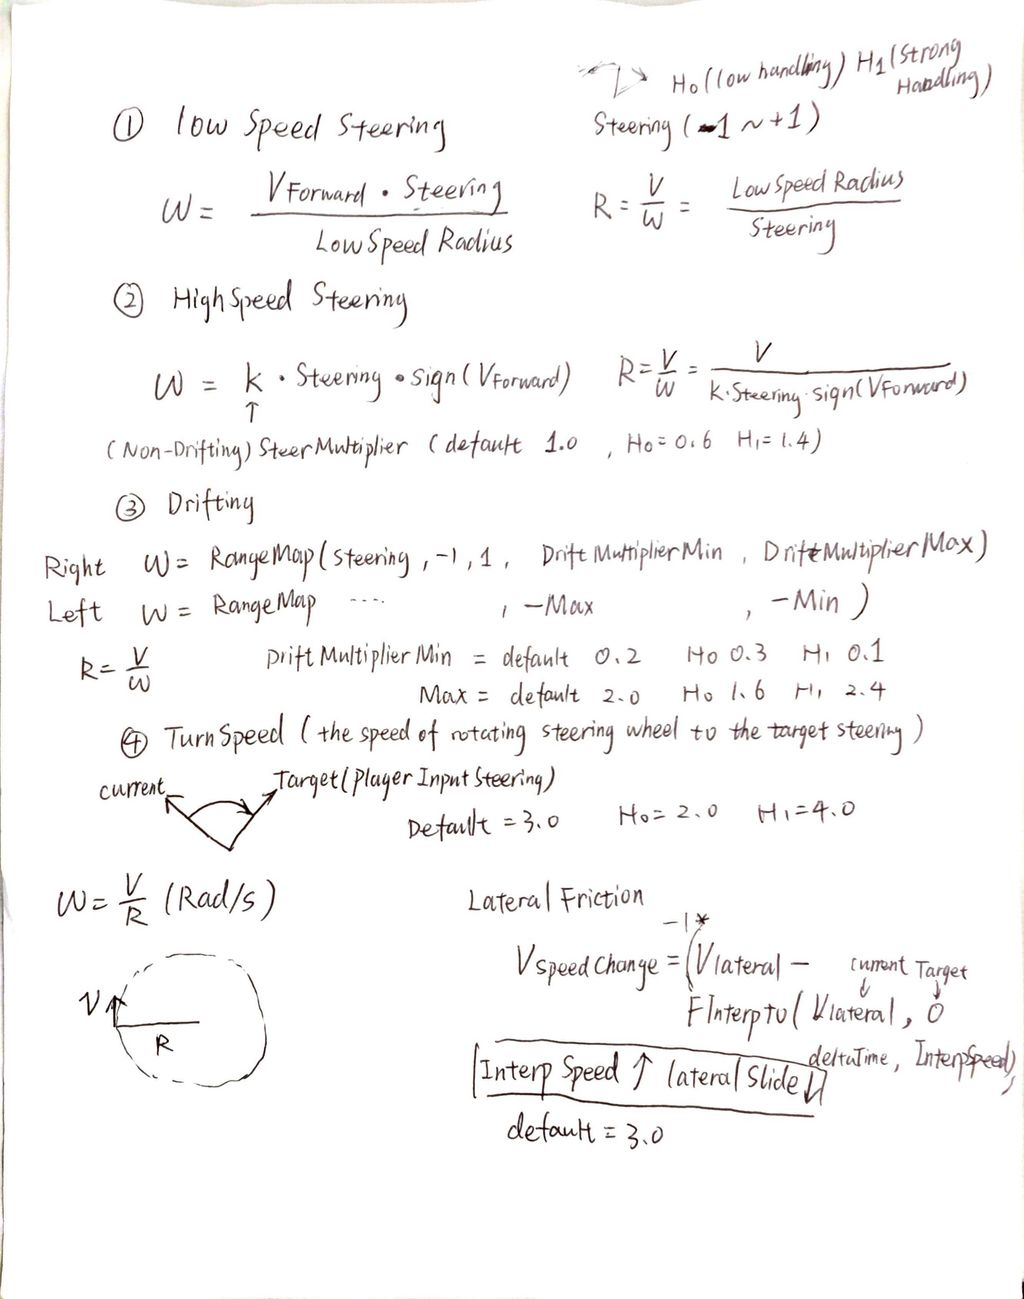 H0 (low handling) H1 (Strong Handling)
① low Speed Steering
Steering (-1 ~ +1)
W = VForward · Steering / Low Speed Radius
R = V/W = Low Speed Radius / Steering
② High Speed Steering
W = k · Steering · sign(VForward)
R = V/W = V / k·Steering·sign(VForward)
↑
(Non-Drifting) Steer Multiplier (default 1.0, H0=0.6 H1=1.4)
③ Drifting
Right W = RangeMap(steering, -1, 1, Drift Multiplier Min, Drift Multiplier Max)
Left W = RangeMap ···· , -Max , -Min)
R = V/W
Drift Multiplier Min = default 0.2 H0 0.3 H1 0.1
Max = default 2.0 H0 1.6 H1 2.4
④ Turn Speed (the speed of rotating steering wheel to the target steering)
current Target (Player Input Steering)
Default = 3.0 H0 = 2.0 H1 = 4.0
W = V/R (Rad/s)
V
R
Lateral Friction
-1*
V speed Change = (Vlateral -
current Target
↓ ↓
FInterpto(Vlateral, 0
deltaTime, InterpSpeed)
Interp Speed ↑ lateral Slide ↓
default = 3.0